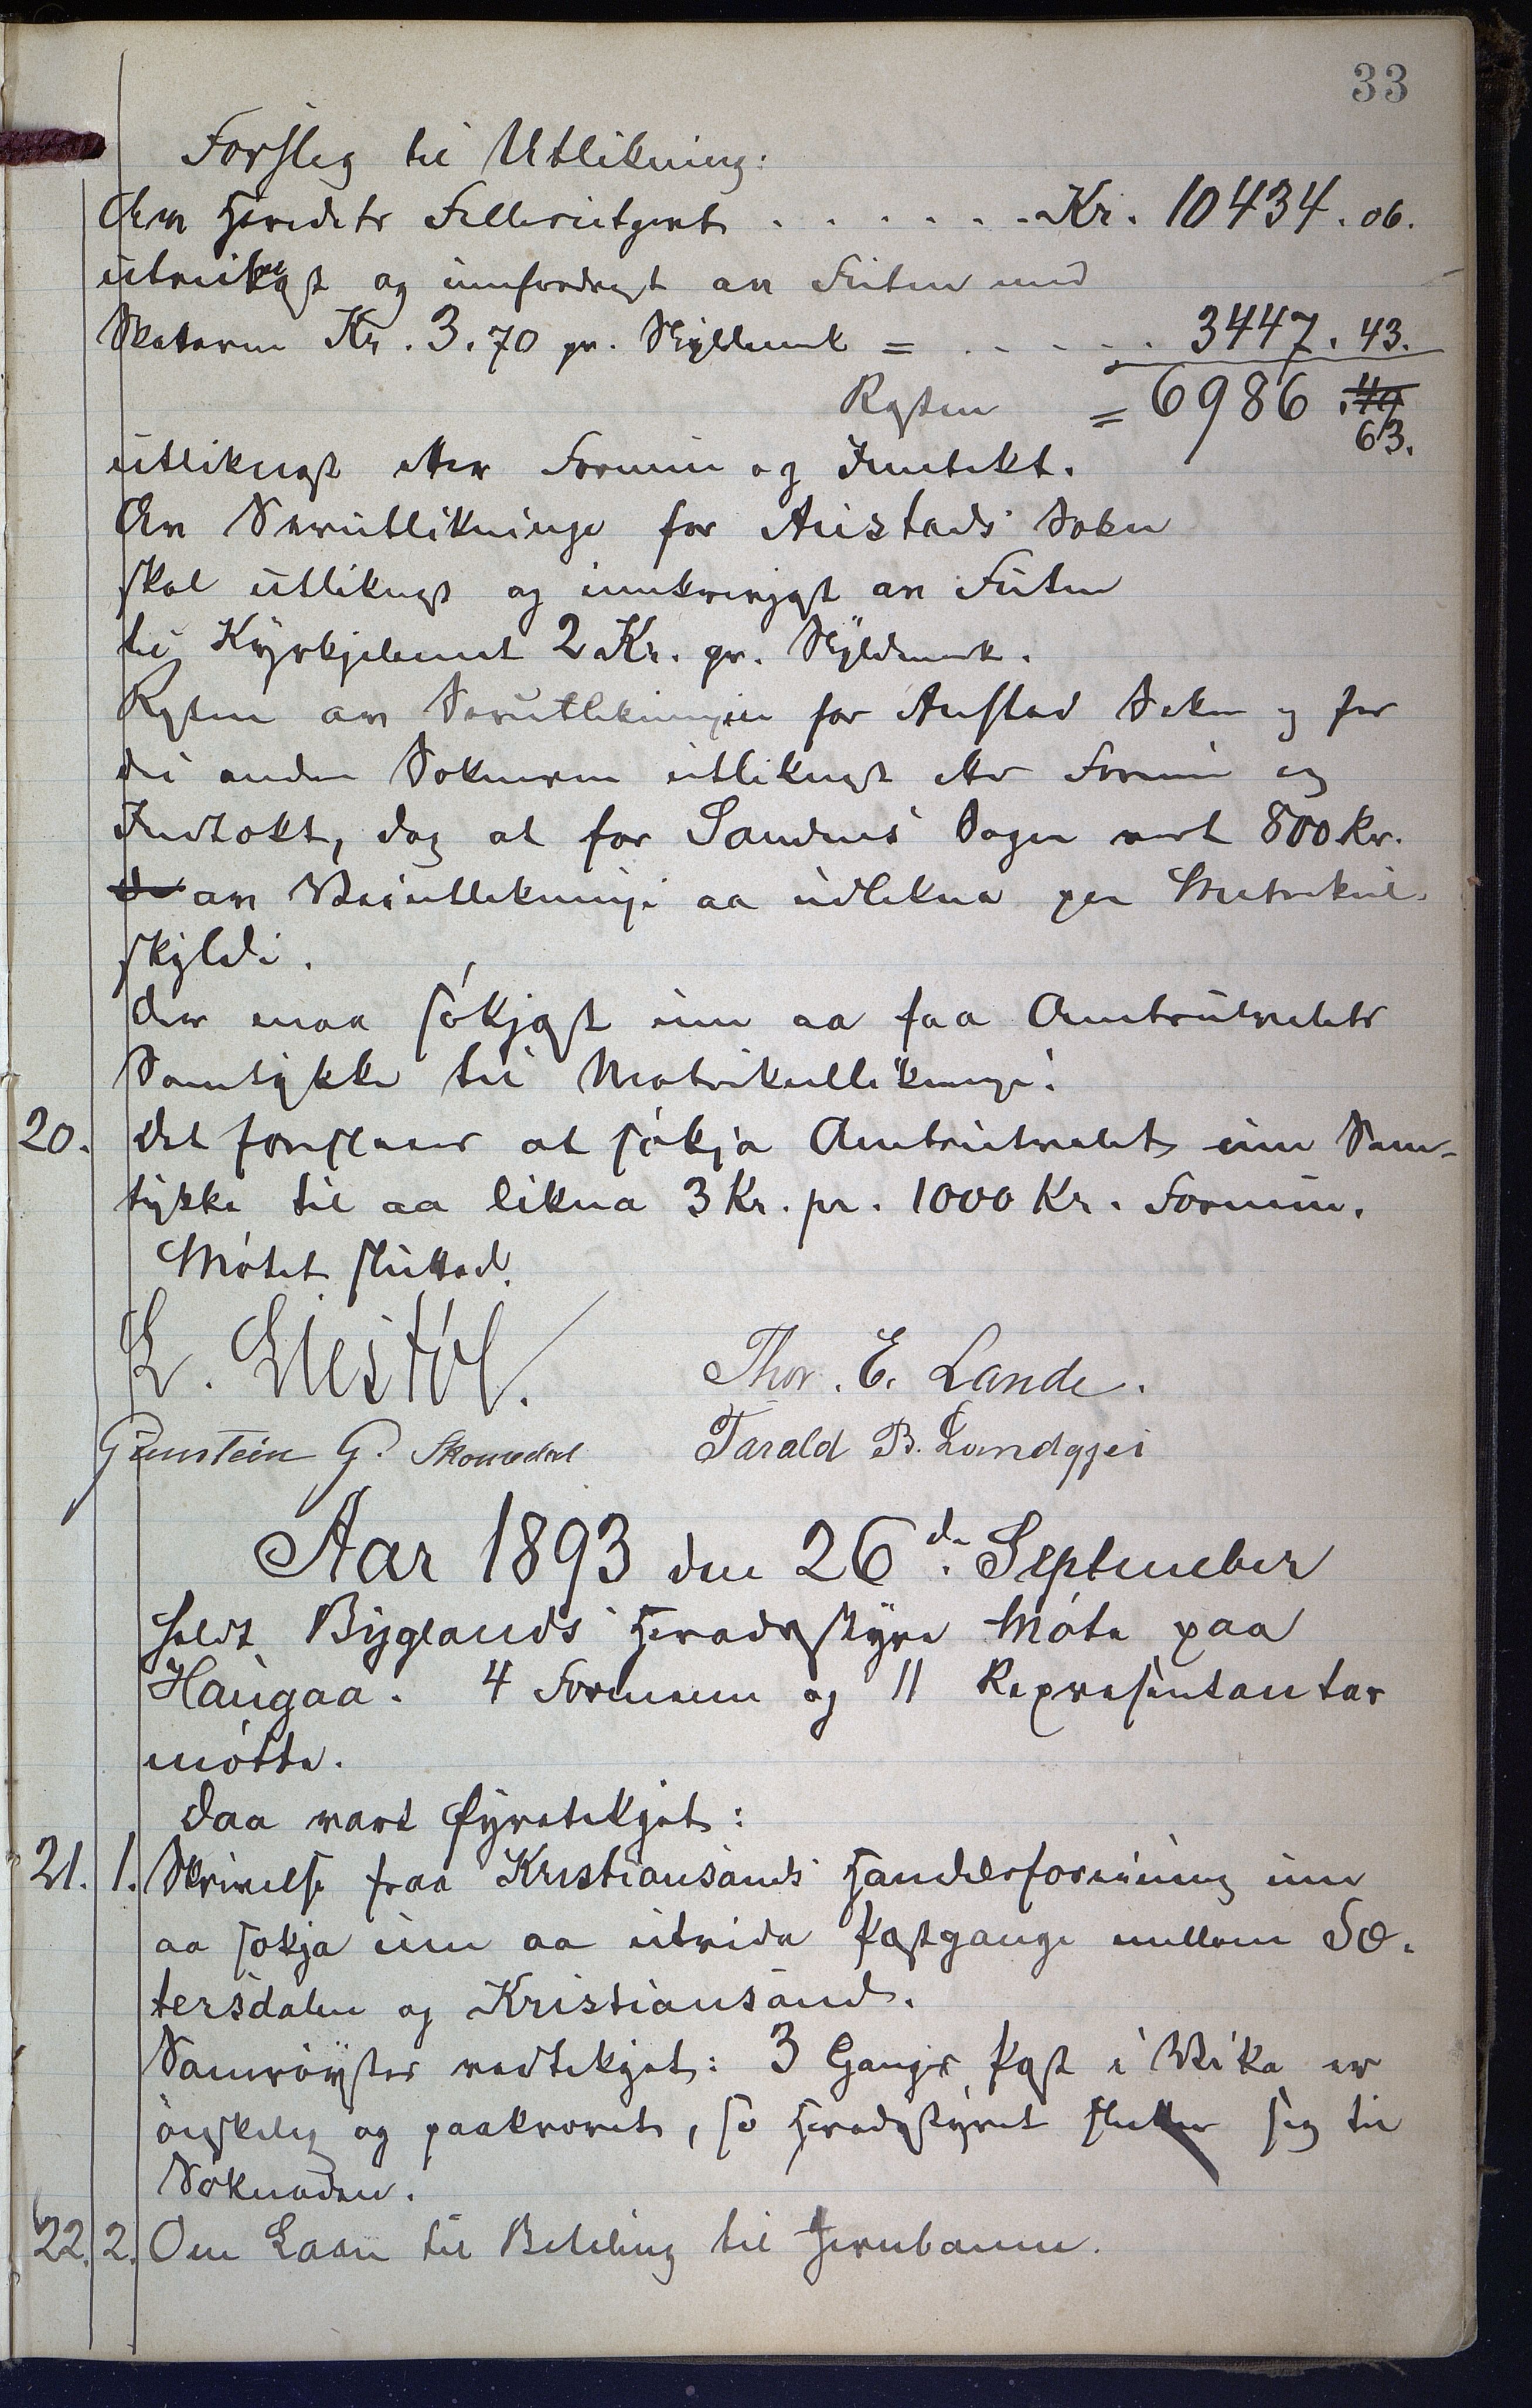 33
Forslag til Utlikning:
Av Heradets Fellesutgift . . . . . . Kr. 10434.06.
utreiknast og innfordrast av Futen med
Skatarne Kr. 3.70 pr. Skyldmark = . . . . . 3447.43.
Resten = 6986.49
63.
utliknast etter Formue og Inntekt.
Av Serutlikningi for Austads Sokn
skal utliknast og innkrevjast av Futen
til Kyrkjelamt 2 Kr. pr. Skyldmark.
Resten av Serutlikningen for Austad Sokn og for
dei andre Soknerne utliknast etter Formue og
Indtekt, dog at for Sandnes Sogn vert 800 Kr.
av Veiutlikningi aa utlikna paa Matrikul-
skyldi.
Der maa søkjast um aa faa Amtsutvalets
Samtykke til Matrikullikningi.
20. Det foreslaaes at søkja Amtsutvalet um Sam-
tykke til aa likna 3 Kr. pr. 1000 Kr. Formue.
Møtet sluttad.
L. Liestøl. Thor. E. Lande.
Gunstein G. Skomedal Tarald B. Landsgjei
Aar 1893 den 26de September
heldt Byglands Heradsstyre Møte paa
Haugaa. 4 Formenn og 11 Representantar
møtte.
Daa vart fyretekjet:
21. 1. Skrivelse fraa Kristiansands Handelsforening um
aa søkja um aa utvida Postgange millom Sæ-
tersdalen og Kristiansand.
Samrøystes vedtekjet: 3 Gangs Post i Vika er
ønskeleg og paakrevet, so Heradsstyret slutter seg til
Søknaden.
22. 2. Om Laan til Beteling til Jernbanen.